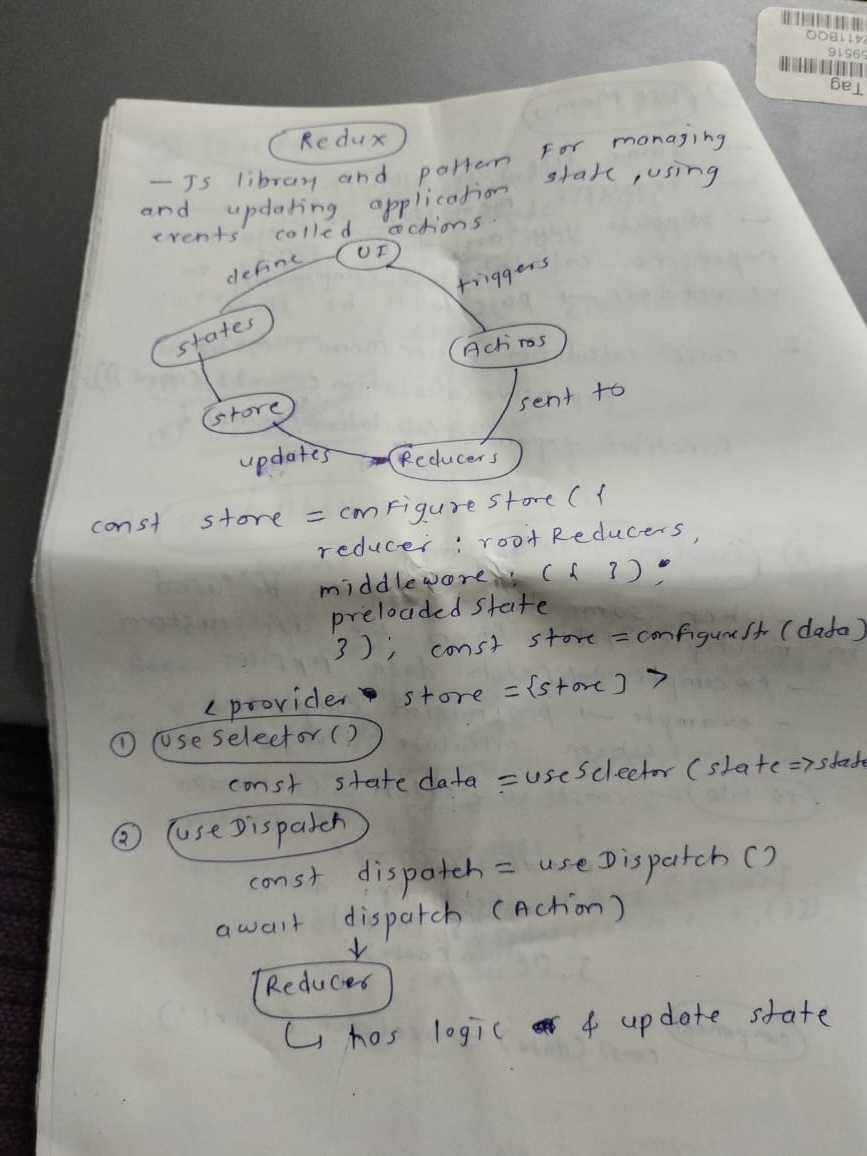 Redux
- JS library and pattern For managing
and updating application state, using
events called actions.
UI
define
triggers
states
Actions
store
sent to
updates
Reducers
const store = configure store ( {
reducer : root Reducers,
middleware : ( { } ) ;
preloaded state
} ) ; const store = configureStr (data)
< provider store = {store} >
① use selector ( )
const state data = use Selector (state => state
② use Dispatch
const dispatch = use Dispatch ( )
await dispatch (Action)
↓
Reducer
↳ has logic & update state
Tag